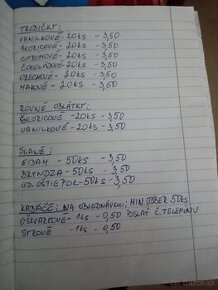 TRUBIČKY:
VANILKOVÉ - 20KS - 3,50
ŠKORICOVÉ - 20KS - 3,50
CITRÓNOVÉ - 20KS - 3,50
ČOKOLÁDOVÉ - 20KS - 3,50
ORECHOVÉ - 20KS - 3,50
MAKOVÉ - 20KS - 3,50
ROVNÉ OBLÁTKY:
ŠKORICOVÉ - 20KS - 3,50
VANILKOVÉ - 20KS - 3,50
SLANÉ:
EDAM - 50KS - 3,50
BRYNDZA - 50KS - 3,50
ÚD. OŠTIEPOK - 50KS - 3,50
NA OBJEDNÁVKU: MIN. ODBER 50KS
OŠKVARKOVÉ - 1KS - 0,50 POSLAŤ Č. TELEFÓNU
SYROVÉ - 1KS - 0,50